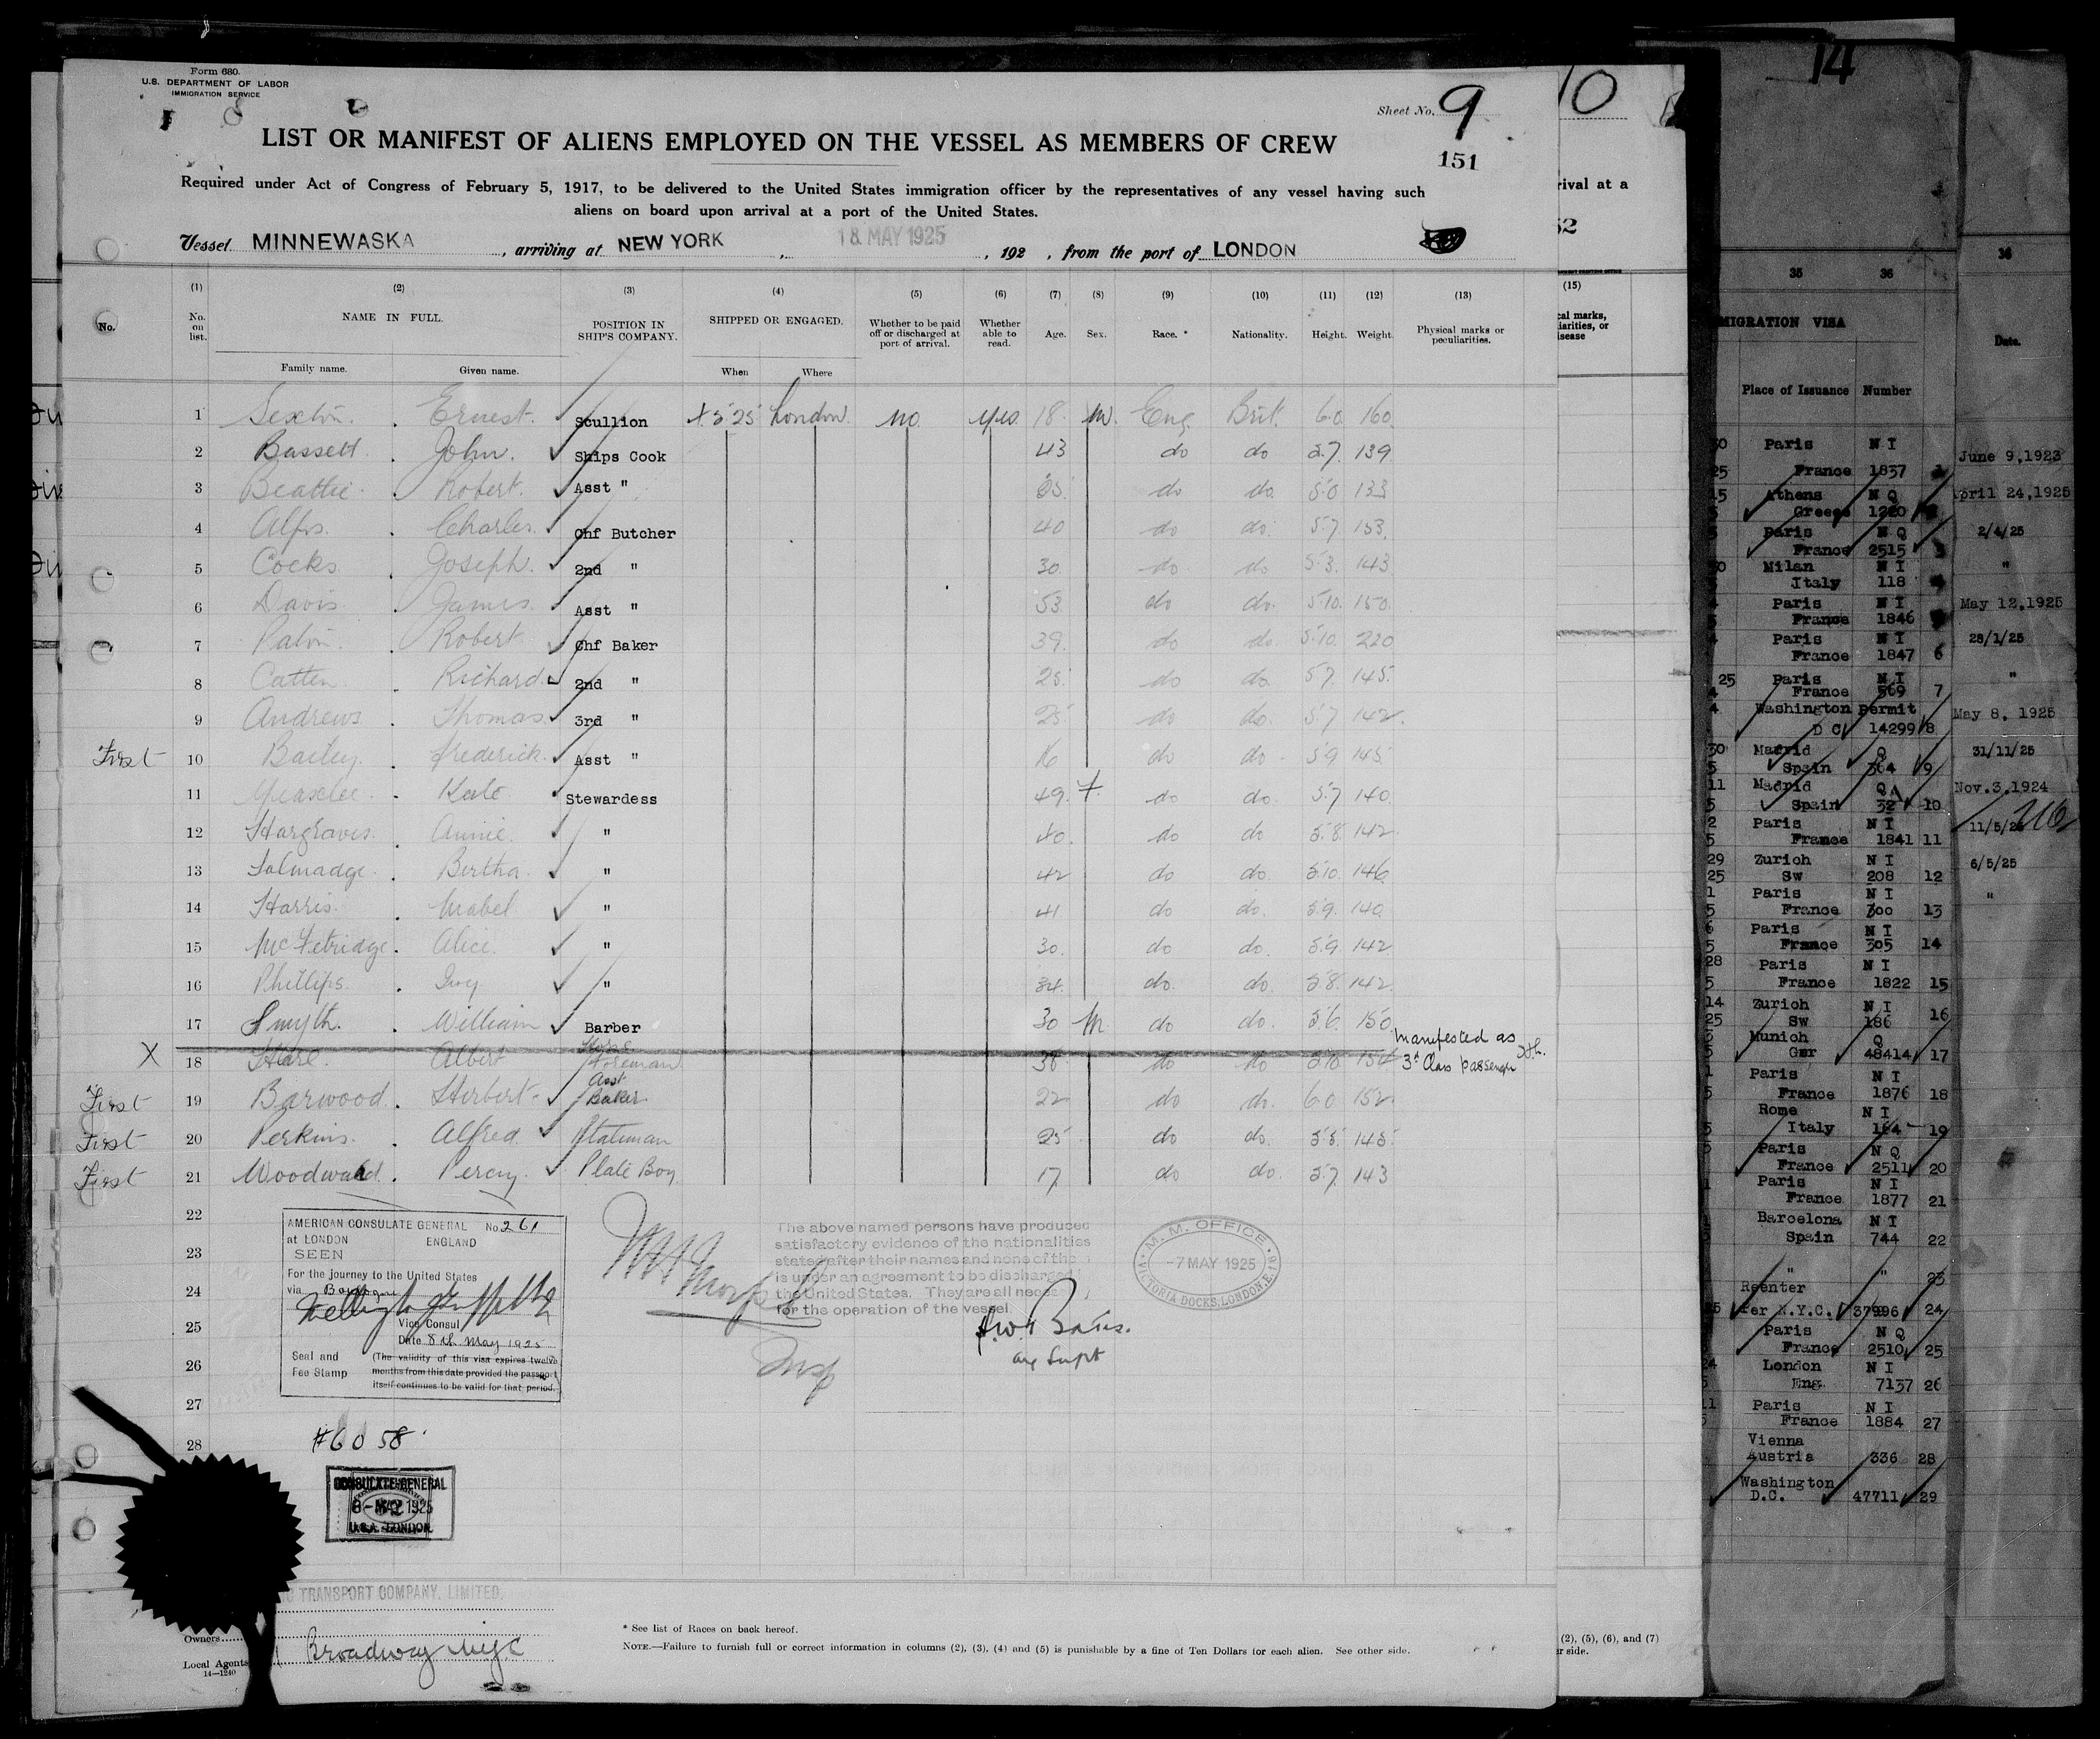 Form 680.
U.S. DEPARTMENT OF LABOR
IMMIGRATION SERVICE
Sheet No. 9
LIST OR MANIFEST OF ALIENS EMPLOYED ON THE VESSEL AS MEMBERS OF CREW
151
Required under Act of Congress of February 5, 1917, to be delivered to the United States immigration officer by the representatives of any vessel having such
aliens on board upon arrival at a port of the United States.
Vessel MINNEWASKA, arriving at NEW YORK, 18 MAY 1925, 192 , from the port of LONDON
(1) (2) (3) (4) (5) (6) (7) (8) (9) (10) (11) (12) (13)
No. No. on list. NAME IN FULL. POSITION IN SHIP'S COMPANY. SHIPPED OR ENGAGED. Whether to be paid off or discharged at port of arrival. Whether able to read. Age. Sex. Race. * Nationality. Height. Weight. Physical marks or peculiarities.
Family name. Given name. When Where
1 Sexton. Ernest. Scullion 5 25 London no yes 18 M. Eng. Brit. 6.0 160
2 Bassett. John. Ships Cook 43 do do 5.7 139
3 Beattie. Robert. Asst " 25 do do 5.8 133
4 Charles. Chf Butcher 40 do do 5.7 153
5 Cocks Joseph. 2nd " 30 do do 5.3 143
6 Davis James. Asst " 53 do do 5.10 150
7 Robert Chf Baker 39 do do 5.10 220
8 Catten Richard. 2nd " 25 do do 5.7 145
9 Andrews Thomas 3rd " 25 do do 5.7 142
First 10 Bailey. Frederick. Asst " 16 do do 5.9 145
11 Kate Stewardess 49 F. do do 5.7 140
12 Hargraves. Annie. " 40 do do 5.8 142
13 Talmadge. Bertha. " 42 do do 5.10 146
14 Harris. Mabel " 41 do do 5.9 140
15 McFetridge. Alice. " 30 do do 5.9 142
16 Phillips. Ivy " 34 do do 5.8 142
17 Smyth. William Barber 30 M. do do 5.6 150
X 18 Albert Store 38 do do manifested as 3d Class passenger
First 19 Barwood. Herbert Asst Baker 22 do do 6.0 152
First 20 Perkins. Alfred Plateman 25 do do 5.5 145
First 21 Woodward. Percy. Plate Boy 17 do do 5.7 143
22
23
24
25
26
27
28
AMERICAN CONSULATE GENERAL No 261
at LONDON ENGLAND
SEEN
For the journey to the United States
via
Vice Consul
Date 8th May 1925
Seal and Fee Stamp
(The validity of this visa expires twelve
months from this date provided the passport
itself continues to be valid for that period.
The above named persons have produced
satisfactory evidence of the nationalities
stated after their names and none of the
is under an agreement to be discharged
the United States. They are all
for the operation of the vessel.
M. M. OFFICE
-7 MAY 1925
VICTORIA DOCKS, LONDON, E.
Insp
#6058
CONSULATE GENERAL
8- MAY 1925
U.S.A. LONDON
TRANSPORT COMPANY, LIMITED.
Owners
Local Agents Broadway NYC
14—1240
* See list of Races on back hereof.
NOTE.—Failure to furnish full or correct information in columns (2), (3), (4) and (5) is punishable by a fine of Ten Dollars for each alien. See other side.
10
rival at a
52
(15)
(2), (5), (6), and (7)
er side.
14
35 36
MIGRATION VISA
Place of Issuance Number
Paris N I
France 1837
Athens N Q
Greece 1220
Paris N Q
France 2515
Milan N I
Italy 118
Paris N I
France 1846
Paris N I
France 1847 6
Paris N I
France 569 7
Washington Permit
D C 14299 8
Madrid Q
Spain 364 9
Madrid Q
Spain 32 10
Paris N I
France 1841 11
Zurich N I
Sw 208 12
Paris N I
France 300 13
Paris N I
France 305 14
Paris N I
France 1822 15
Zurich N I
Sw 186 16
Munich Q
Ger 48414 17
Paris N I
France 1876 18
Rome N I
Italy 164 19
Paris N Q
France 2511 20
Paris N I
France 1877 21
Barcelona N I
Spain 744 22
" " 23
Reenter
Per N.Y.C. 37996 24
Paris N Q
France 2510 25
London N I
Eng. 7137 26
Paris N I
France 1884 27
Vienna
Austria 336 28
Washington
D.C. 47711 29
36
Date.
June 9,1923
April 24,1925
2/4/25
"
May 12,1925
28/1/25
"
May 8, 1925
31/11/25
Nov.3,1924
11/5/25
6/5/25
"